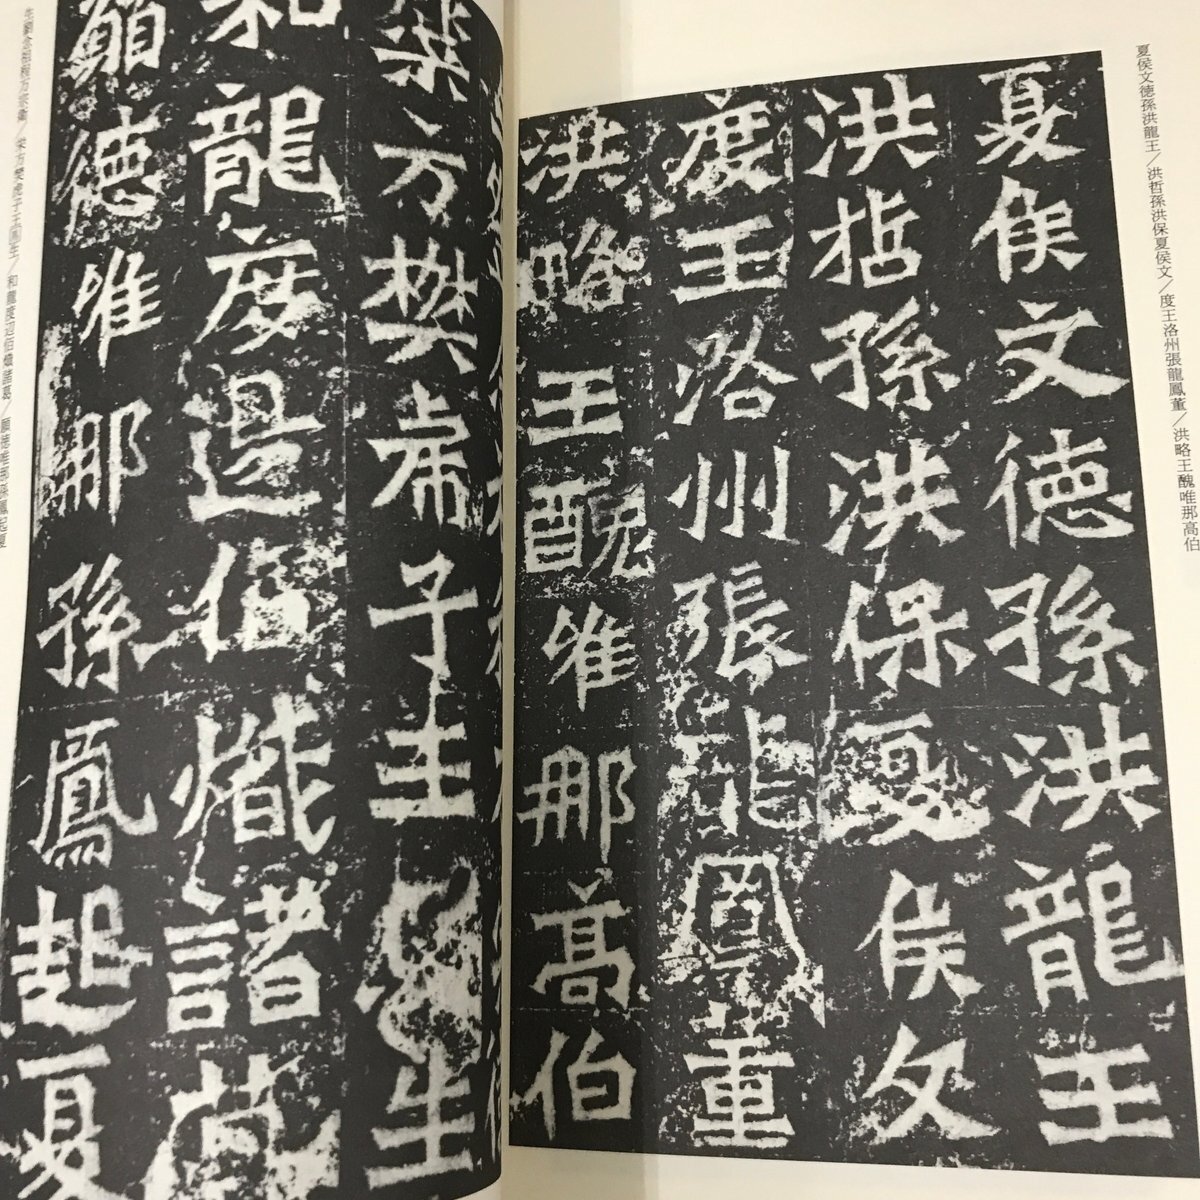 夏侯文德孫洪龍王／洪哲孫洪保夏侯文／度王洛州張龍鳳董／洪略王醜唯那高伯
夏侯文德孫洪龍王
洪哲孫洪保夏侯文
度王洛州張龍鳳董
洪略王醜唯那高伯
樊方樊虎子王鳳生
和龍度邉伯熾諸葛
願德唯那孫鳳起夏
樊方樊虎子王鳳生／和龍度辺伯熾諸葛／願德唯那孫鳳起夏